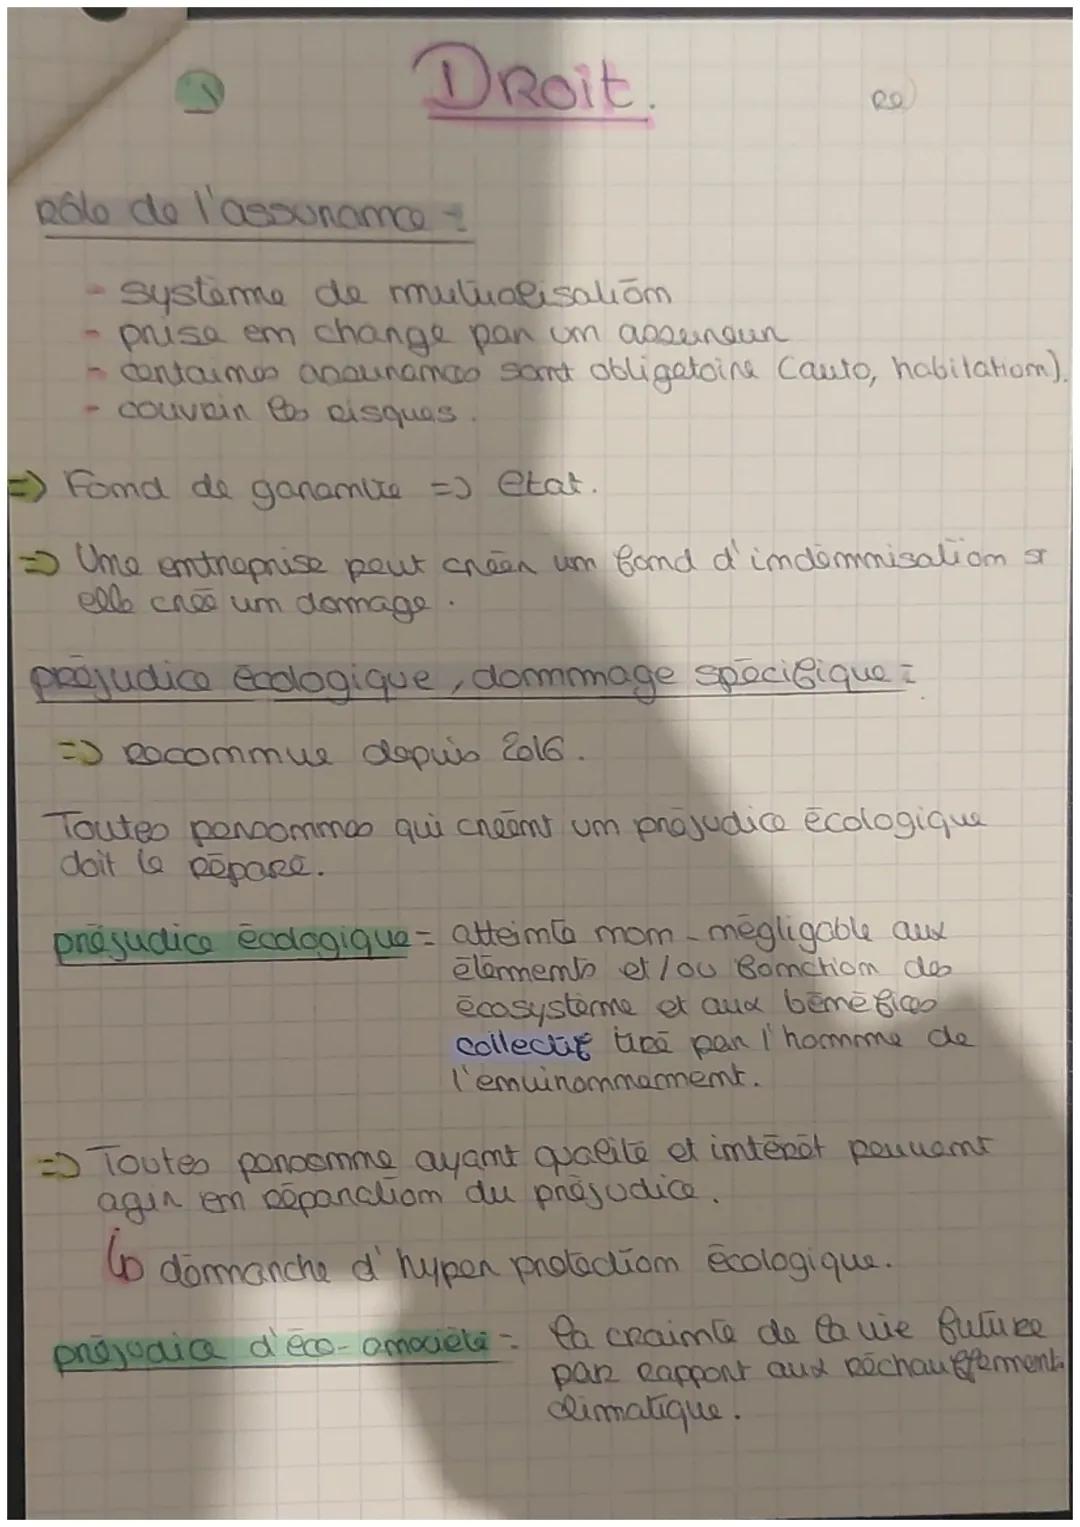 Droit.
rôle de l'assurance :
- système de mutualisation
- prise en charge par un assureur
- certaines assurances sont obligatoire (auto, habitation).
- couvrir les risques.
=> Fond de garantie => etat.
=> Une entreprise peut créer un fond d'indémnisation si
elle créé un domage.
préjudice écologique, dommage spécifique :
=> reconnue depuis 2016.
Toutes personnes qui créént un préjudice écologique
doit le réparé.
préjudice écologique = atteinte non-négligable aux
éléments et/ou fonction des
écosystème et aux bénéfices
collectif tiré par l'homme de
l'environnement.
=> Toutes personne ayant qualité et intérêt peuvent
agir en réparation du préjudice.
↳ démarche d'hyper protection écologique.
préjudice d'éco-anxiété = la crainte de la vie future
par rapport aux réchauffement
climatique.